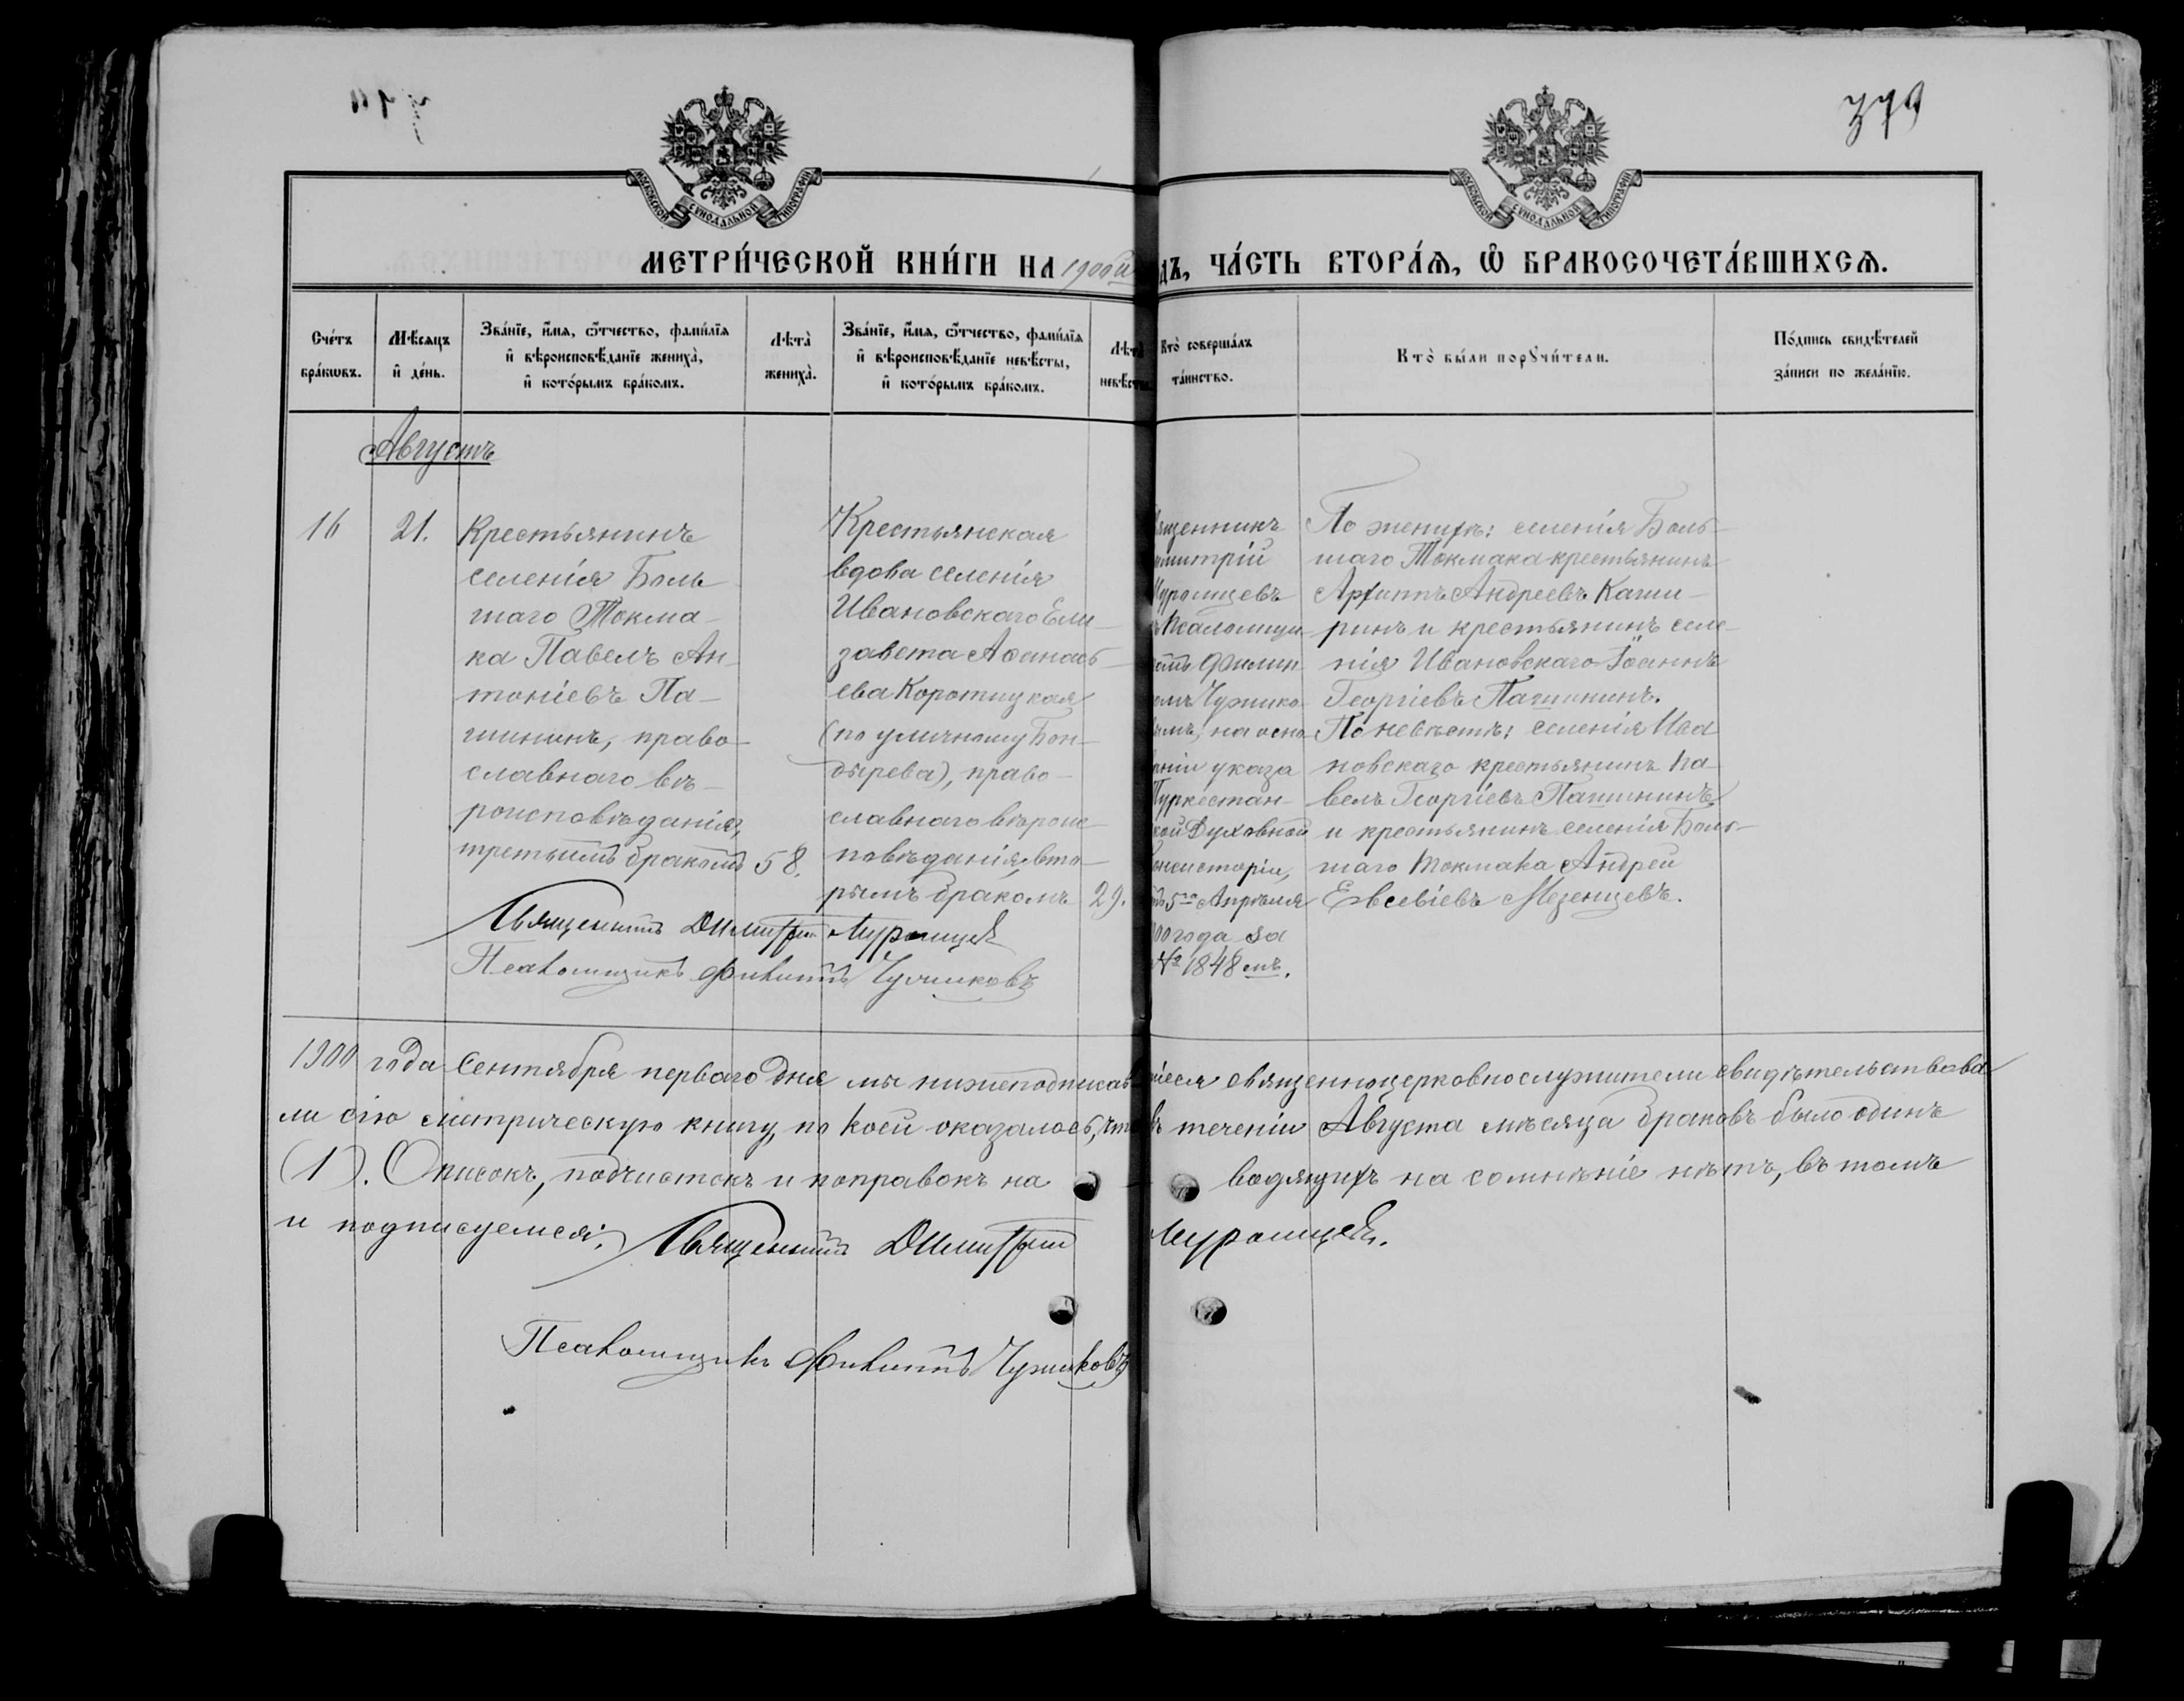 379
МОСКОВСКОЙ СѴНОДАЛЬНОЙ ТИПОГРАФІИ
МОСКОВСКОЙ СѴНОДАЛЬНОЙ ТИПОГРАФІИ
МЕТРИ́ЧЕСКОЙ КНИ́ГИ НА 1900й
ДЪ, ЧА́СТЬ ВТОРА́Я, Ѽ БРАКОСОЧЕТА́ВШИХСЯ.
Сче́тъ
бра́кωвъ.
Мѣ́сяцъ
и҆ де́нь.
Зва́нїе, и҆́мя, ѻ҆́тчество, фами́лїя
и҆ вѣроисповѣ́данїе жениха̀,
и҆ кото́рымъ бра́комъ.
Лѣта̀
жениха̀.
Зва́нїе, и҆́мя, ѻ҆́тчество, фами́лїя
и҆ вѣроисповѣ́данїе невѣ́сты,
и҆ кото́рымъ бра́комъ.
Лѣта̀
невѣ́сты
Кто̀ соверша́лъ
та́инство.
Кто̀ бы́ли порꙋчи́тели.
По́дпись свидѣ́телей
за́писи по жела́нїю.
Августъ
16
21.
Крестьянинъ
селенія Боль
шаго Токма-
ка Павелъ Ан-
тоніевъ Па-
шининъ, право-
славнаго вѣ-
роисповѣданія,
третьимъ бракомъ
58.
Крестьянская
вдова селенія
Ивановскаго Ели-
завета Аѳанась-
ева Коротицкая
(по уличному Бон-
дырева), право-
славнаго вѣроис-
повѣданія, вто-
рымъ бракомъ
29.
ященникъ
имитрій
Муромцевъ
ъ псаломщи-
омъ Филип-
омъ Чулико-
ымъ, на осно-
аніи указа
Туркестан-
кой Духовной
онсисторіи,
5го Апрѣля
00 года за
№ 1848 мъ.
По женихѣ: селенія Боль-
шаго Токмака крестьянинъ
Архиппъ Андреевъ Каши-
ринъ и крестьянинъ селе-
нія Ивановскаго Іоаннъ
Георгіевъ Пашининъ.
По невѣстѣ: селенія Ива
новскаго крестьянинъ Па-
велъ Георгіевъ Пашининъ
и крестьянинъ селенія Боль-
шаго Токмака Андрей
Евсевіевъ Мезенцевъ.
Священникъ Димитрій Муромцевъ
Псаломщикъ Филиппъ
1900 года Сентября перваго дня мы нижеподписав іеся священноцерковнослужители свидѣтельствова
ли сію метрическую книгу, по коей оказалось, что въ теченіи Августа мѣсяца браковъ было одинъ
(1). Описокъ, подчистокъ и поправокъ на водящихъ на сомнѣніе нѣтъ, въ томъ
и подписуемся: Священникъ Димитрій Муромцевъ.
Псаломщикъ Филиппъ